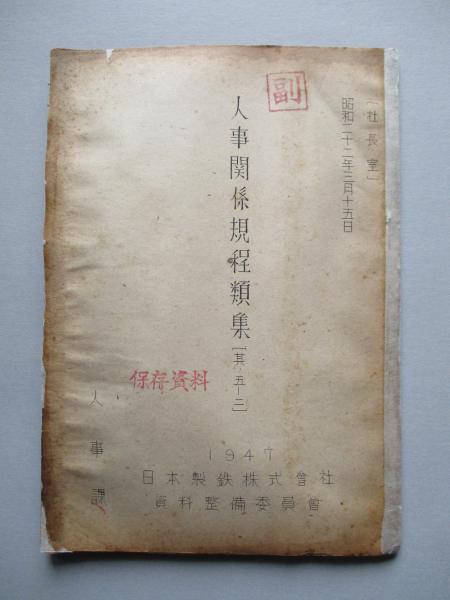 [社長室]
昭和二十二年三月十五日
副
人事関係規程類集[其ノ五-二]
保存資料
人事課
1947
日本製鉄株式會社
資料整備委員會